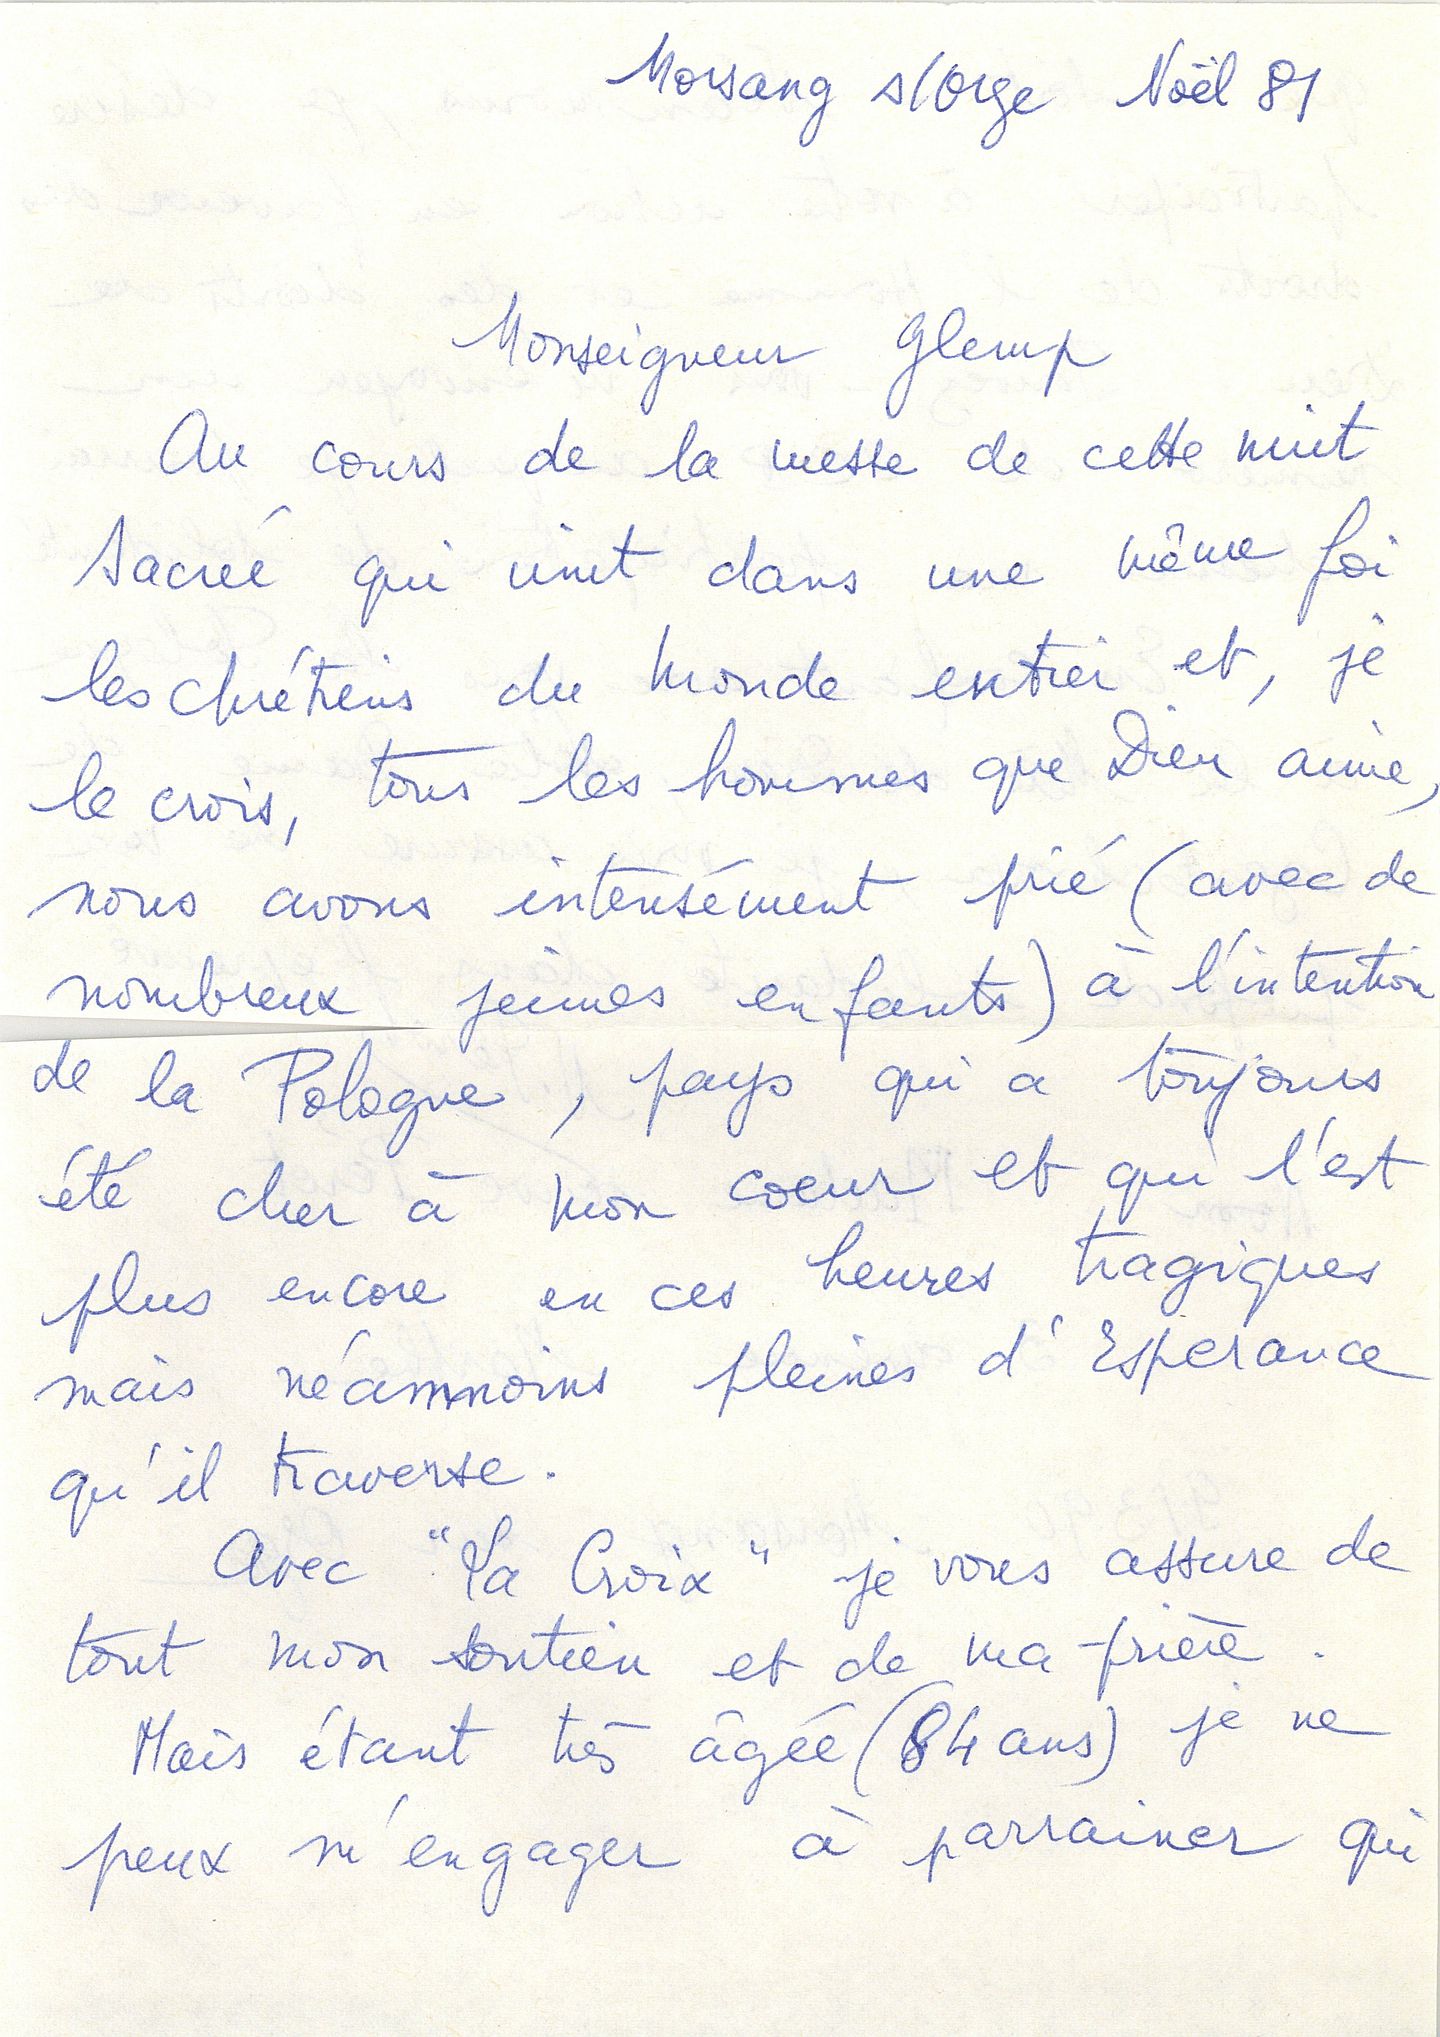 Morsang s/Orge Noël 81
Monseigneur Glemp
Au cours de la messe de cette nuit
sacrée qui unit dans une même foi
les chrétiens du monde entier et, je
le crois, tous les hommes que Dieu aime,
nous avons intensément prié (avec de
nombreux jeunes enfants) à l'intention
de la Pologne, pays qui a toujours
été cher à mon coeur et qui l'est
plus encore en ces heures tragiques
mais néammoins pleines d'Espérance
qu'il traverse.
Avec "La Croix" je vous assure de
tout mon soutien et de ma prière.
Mais étant très âgée (84 ans) je ne
peux m'engager à parrainer qui